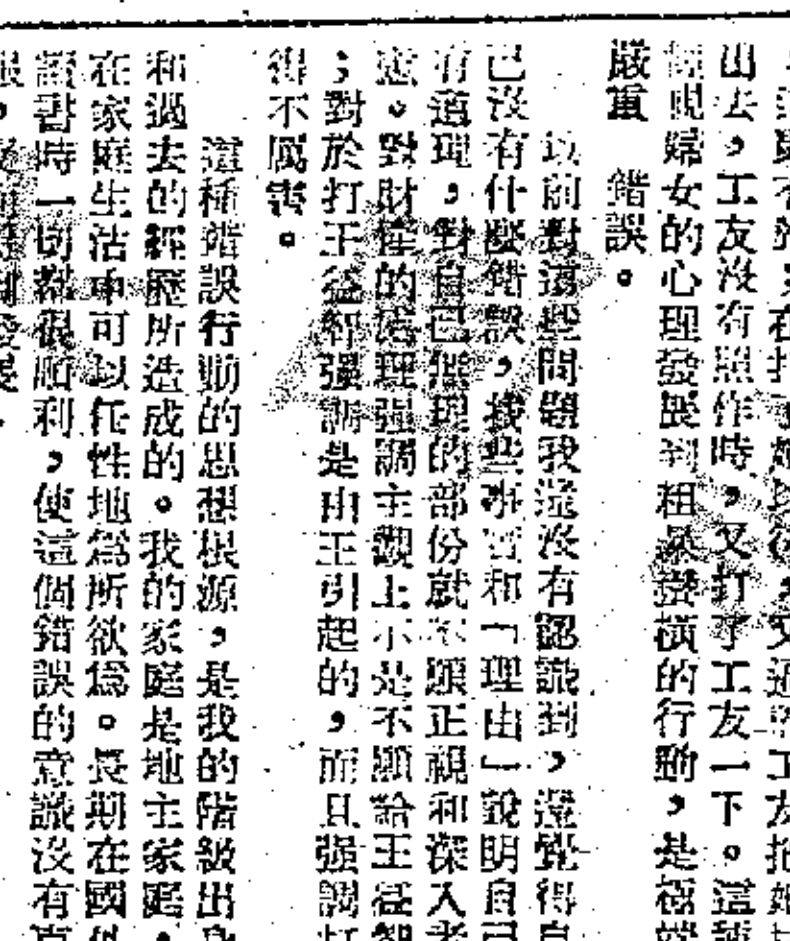 出去，工友沒有照作時，又打了工友一下。這種
輕視婦女的心理發展到粗暴蠻橫的行動，是極端
嚴重　錯誤。
以前對這些問題我還沒有認識到，還覺得自
已沒有什麼錯誤，找些事實和「理由」說明自己
有道理，對自己無理的部份就不願正視和深入考
慮。對財產的處理強調主觀上不是不願給王益智
；對於打王益智強調是由王引起的，而且強調打
得不厲害。
這種錯誤行動的思想根源，是我的階級出身
和過去的經歷所造成的。我的家庭是地主家庭，
在家庭生活中可以任性地爲所欲爲。長期在國外
讀書時一切都很順利，使這個錯誤的意識沒有